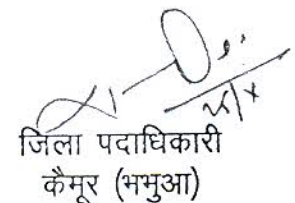 जिला पदाधिकारी
कैमूर (भभुआ)